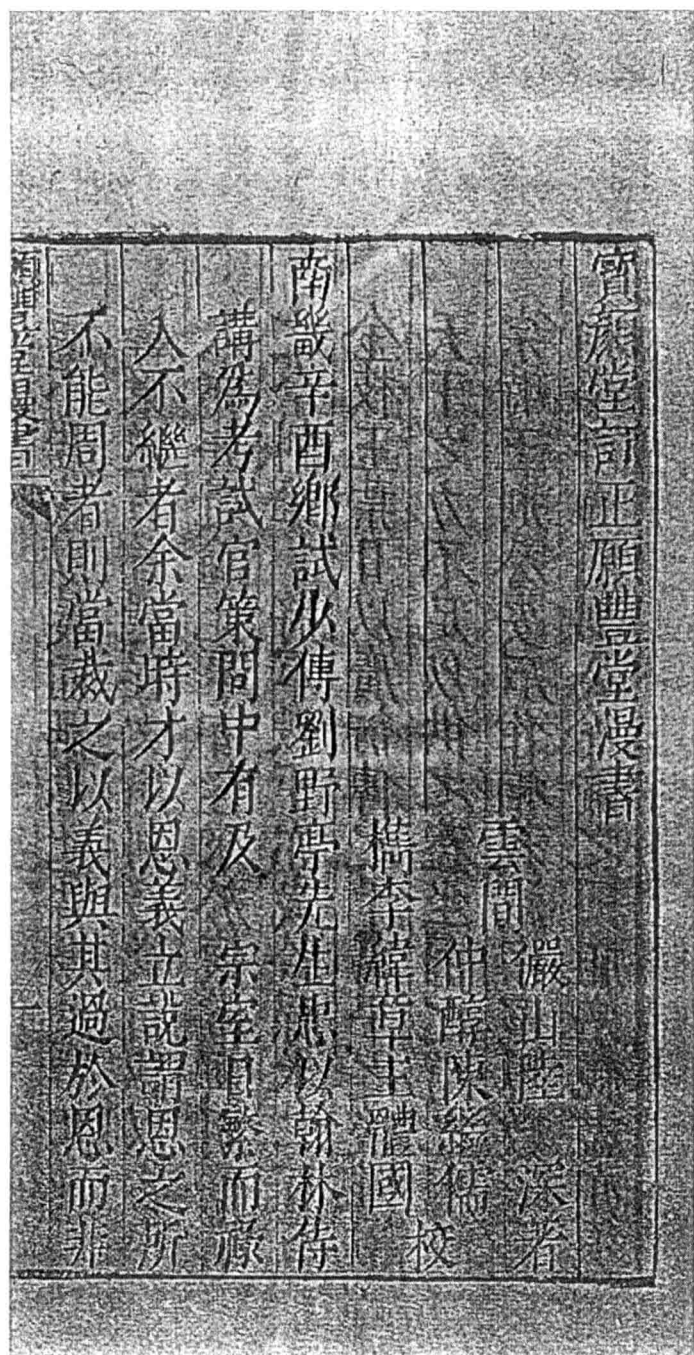 寶顏堂訂正願豐堂漫書
雲間
儼山陸深著
仲醇陳繼儒
檇李緯草王體國
校
南畿辛酉鄉試少傅劉野亭先生忠以翰林侍
講爲考試官策問中有及 宗室日繁而祿
入不繼者余當時才以恩義立說謂恩之所
不能周者則當裁之以義與其過於恩而非
願豐堂漫書
一